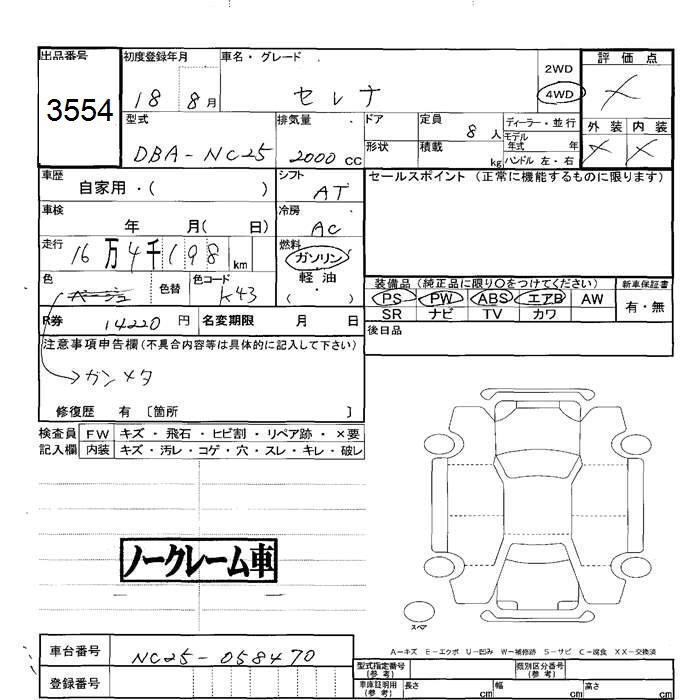 出品番号 初度登録年月 車名・グレード 2WD 評価点
3554 18 8月 セレナ 4WD
型式 排気量 ドア 定員 ディーラー・並行 外装 内装
8人 モデル年式 年
DBA-NC25 2000cc 形状 積載 kg ハンドル 左・右
車歴 自家用・( ) シフト AT セールスポイント(正常に機能するものに限ります)
車検 年 月( 日) 冷房 AC
走行 16万4千198km 燃料 ガソリン
軽油・( )
色 ベージュ 色替 色コード K43
装備品(純正品に限り○をつけてください) 新車保証書
PS PW ABS エアB AW 有・無
SR ナビ TV カワ
R券 14220円 名変期限 月 日 後日品
注意事項申告欄(不具合内容等は具体的に記入して下さい)
ガンメタ
修復歴 有 〔箇所 〕
検査員 FW キズ・飛石・ヒビ割・リペア跡・×要
記入欄 内装 キズ・汚レ・コゲ・穴・スレ・キレ・破レ
ノークレーム車
スペア
A-キズ E-エクボ U-凹み W-補修跡 S-サビ C-腐食 XX-交換済
車台番号 NC25-058470
登録番号
型式指定番号(参考) 類別区分番号(参考)
車庫証明用(参考) 長さ cm 幅 cm 高さ cm